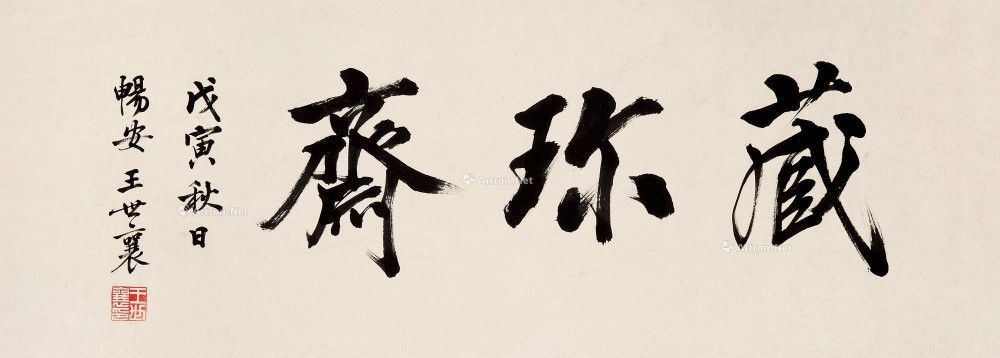 藏珎齋
戊寅秋日
暢安王世襄
王世襄印
Artron.Net
Artron.Net
Artron.Net